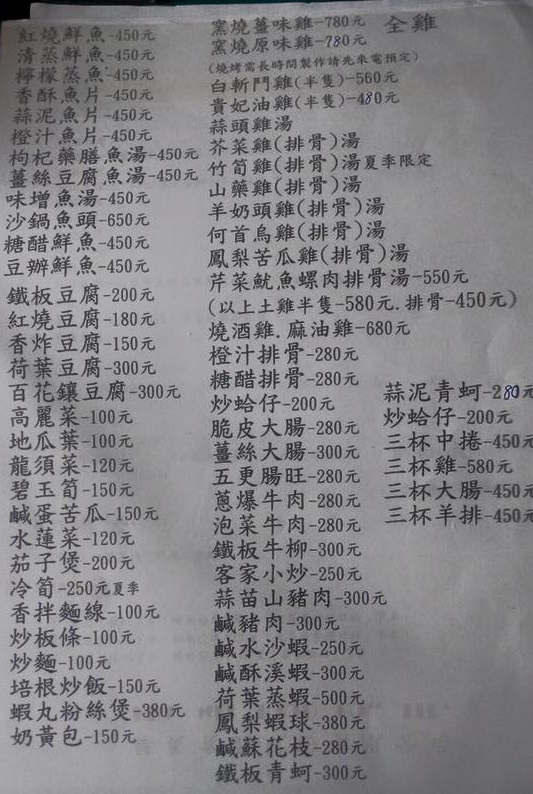 紅燒鮮魚-450元
清蒸鮮魚-450元
檸檬蒸魚-450元
香酥魚片-450元
蒜泥魚片-450元
橙汁魚片-450元
枸杞藥膳魚湯-450元
薑絲豆腐魚湯-450元
味增魚湯-450元
沙鍋魚頭-650元
糖醋鮮魚-450元
豆瓣鮮魚-450元
鐵板豆腐-200元
紅燒豆腐-180元
香炸豆腐-150元
荷葉豆腐-300元
百花鑲豆腐-300元
高麗菜-100元
地瓜葉-100元
龍須菜-120元
碧玉筍-150元
鹹蛋苦瓜-150元
水蓮菜-120元
茄子煲-200元
冷筍-250元夏季
香拌麵線-100元
炒板條-100元
炒麵-100元
培根炒飯-150元
蝦丸粉絲煲-380元
奶黃包-150元
窯燒薑味雞-780元 全雞
窯燒原味雞-780元
(燒烤需長時間製作請先來電預定)
白斬鬥雞(半隻)-560元
貴妃油雞(半隻)-480元
蒜頭雞湯
芥菜雞(排骨)湯
竹筍雞(排骨)湯夏季限定
山藥雞(排骨)湯
羊奶頭雞(排骨)湯
何首烏雞(排骨)湯
鳳梨苦瓜雞(排骨)湯
芹菜魷魚螺肉排骨湯-550元
(以上土雞半隻-580元.排骨-450元)
燒酒雞.麻油雞-680元
橙汁排骨-280元
糖醋排骨-280元
炒蛤仔-200元
脆皮大腸-280元
薑絲大腸-300元
五更腸旺-280元
蔥爆牛肉-280元
泡菜牛肉-280元
鐵板牛柳-300元
客家小炒-250元
蒜苗山豬肉-300元
鹹豬肉-300元
鹹水沙蝦-250元
鹹酥溪蝦-300元
荷葉蒸蝦-500元
鳳梨蝦球-380元
鹹蘇花枝-280元
鐵板青蚵-300元
蒜泥青蚵-280元
炒蛤仔-200元
三杯中捲-450元
三杯雞-580元
三杯大腸-450元
三杯羊排-450元